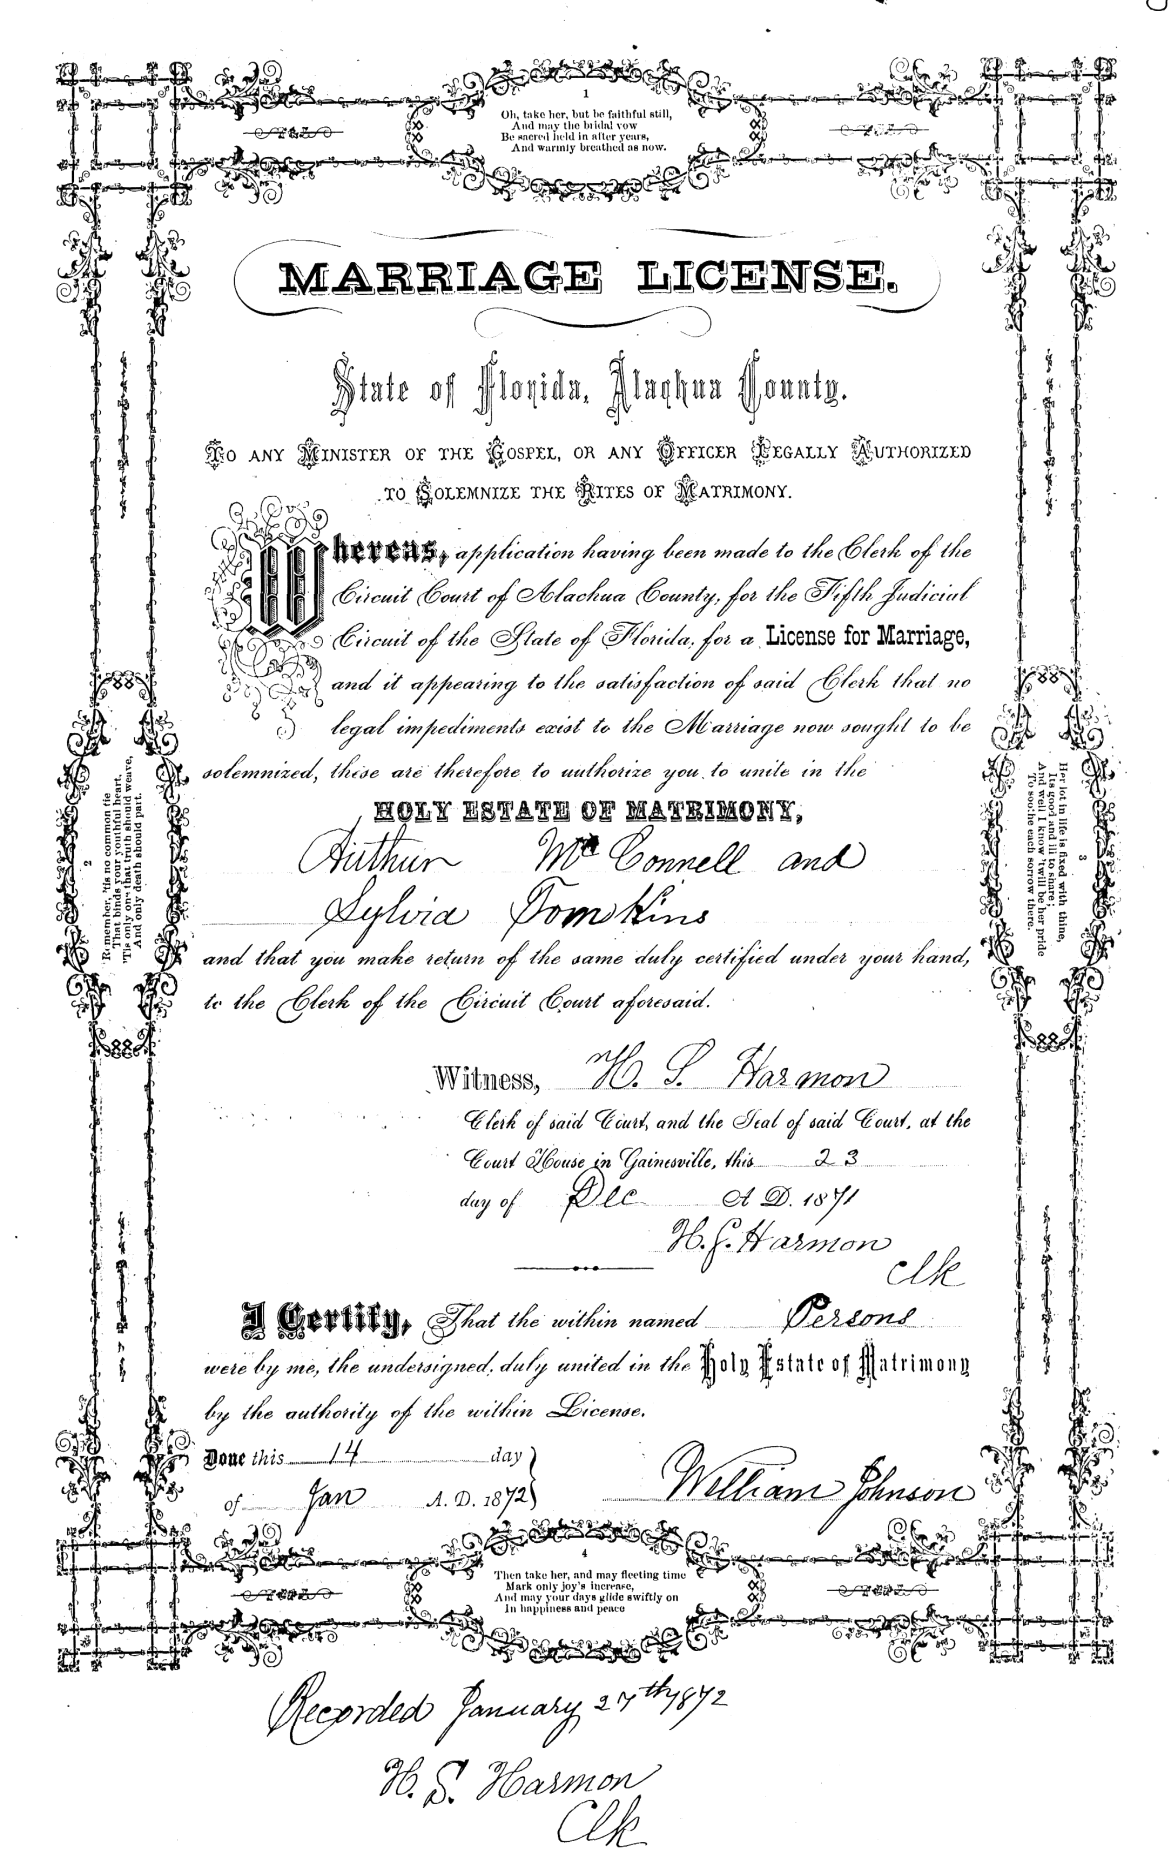 1
Oh, take her, but be faithful still,
And may the bridal vow
Be sacred held in after years,
And warmly breathed as now.
MARRIAGE LICENSE.
State of Florida, Alachua County.
TO ANY MINISTER OF THE GOSPEL, OR ANY OFFICER LEGALLY AUTHORIZED
TO SOLEMNIZE THE RITES OF MATRIMONY.
Whereas, application having been made to the Clerk of the
Circuit Court of Alachua County, for the Fifth Judicial
Circuit of the State of Florida, for a License for Marriage,
and it appearing to the satisfaction of said Clerk that no
legal impediments exist to the Marriage now sought to be
solemnized, these are therefore to authorize you to unite in the
HOLY ESTATE OF MATRIMONY,
Arthur McConnell and
Sylvia Tomkins
and that you make return of the same duly certified under your hand,
to the Clerk of the Circuit Court aforesaid.
2
Remember, 'tis no common tie
That binds your youthful heart,
'Tis only one that truth should weave,
And only death should part.
3
Her lot in life is fixed with thine,
Its good and ill to share;
And well I know 'twill be her pride
To soothe each sorrow there.
Witness, H. S. Harmon
Clerk of said Court, and the Seal of said Court, at the
Court House in Gainesville, this 23
day of Dec A. D. 1871
H. S. Harmon
Clk
I Certify, That the within named Persons
were by me, the undersigned, duly united in the Holy Estate of Matrimony
by the authority of the within License.
Done this 14 day
of Jan A. D. 1872
William Johnson
4
Then take her, and may fleeting time
Mark only joy's increase,
And may your days glide swiftly on
In happiness and peace
Recorded January 27th 1872
H. S. Harmon
Clk